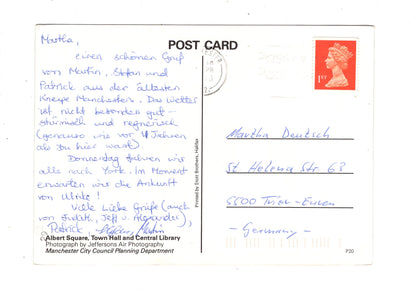 Martha,
einen schönen Gruß
von Martin, Stefan und
Patrick aus der ältesten
Kneipe Manchesters. Das Wetter
ist nicht besonders gut -
stürmisch und regnerisch
(genauso wie vor 4 Jahren
als Du hier warst)
Donnerstag fahren wir
alle nach York. Im Moment
erwarten wir die Ankunft
von Ulrike!
Viele Liebe Grüße (auch
von Judith, Jeff u. Alexander),
Patrick, Stefan, Martin
Albert Square, Town Hall and Central Library
Photograph by Jeffersons Air Photography
Manchester City Council Planning Department
Printed by Elliott Brothers, Halifax
POST CARD
1ST
Martha Deutsch
St. Helena Str. 63
5500 Trier-Euren
- Germany -
P20